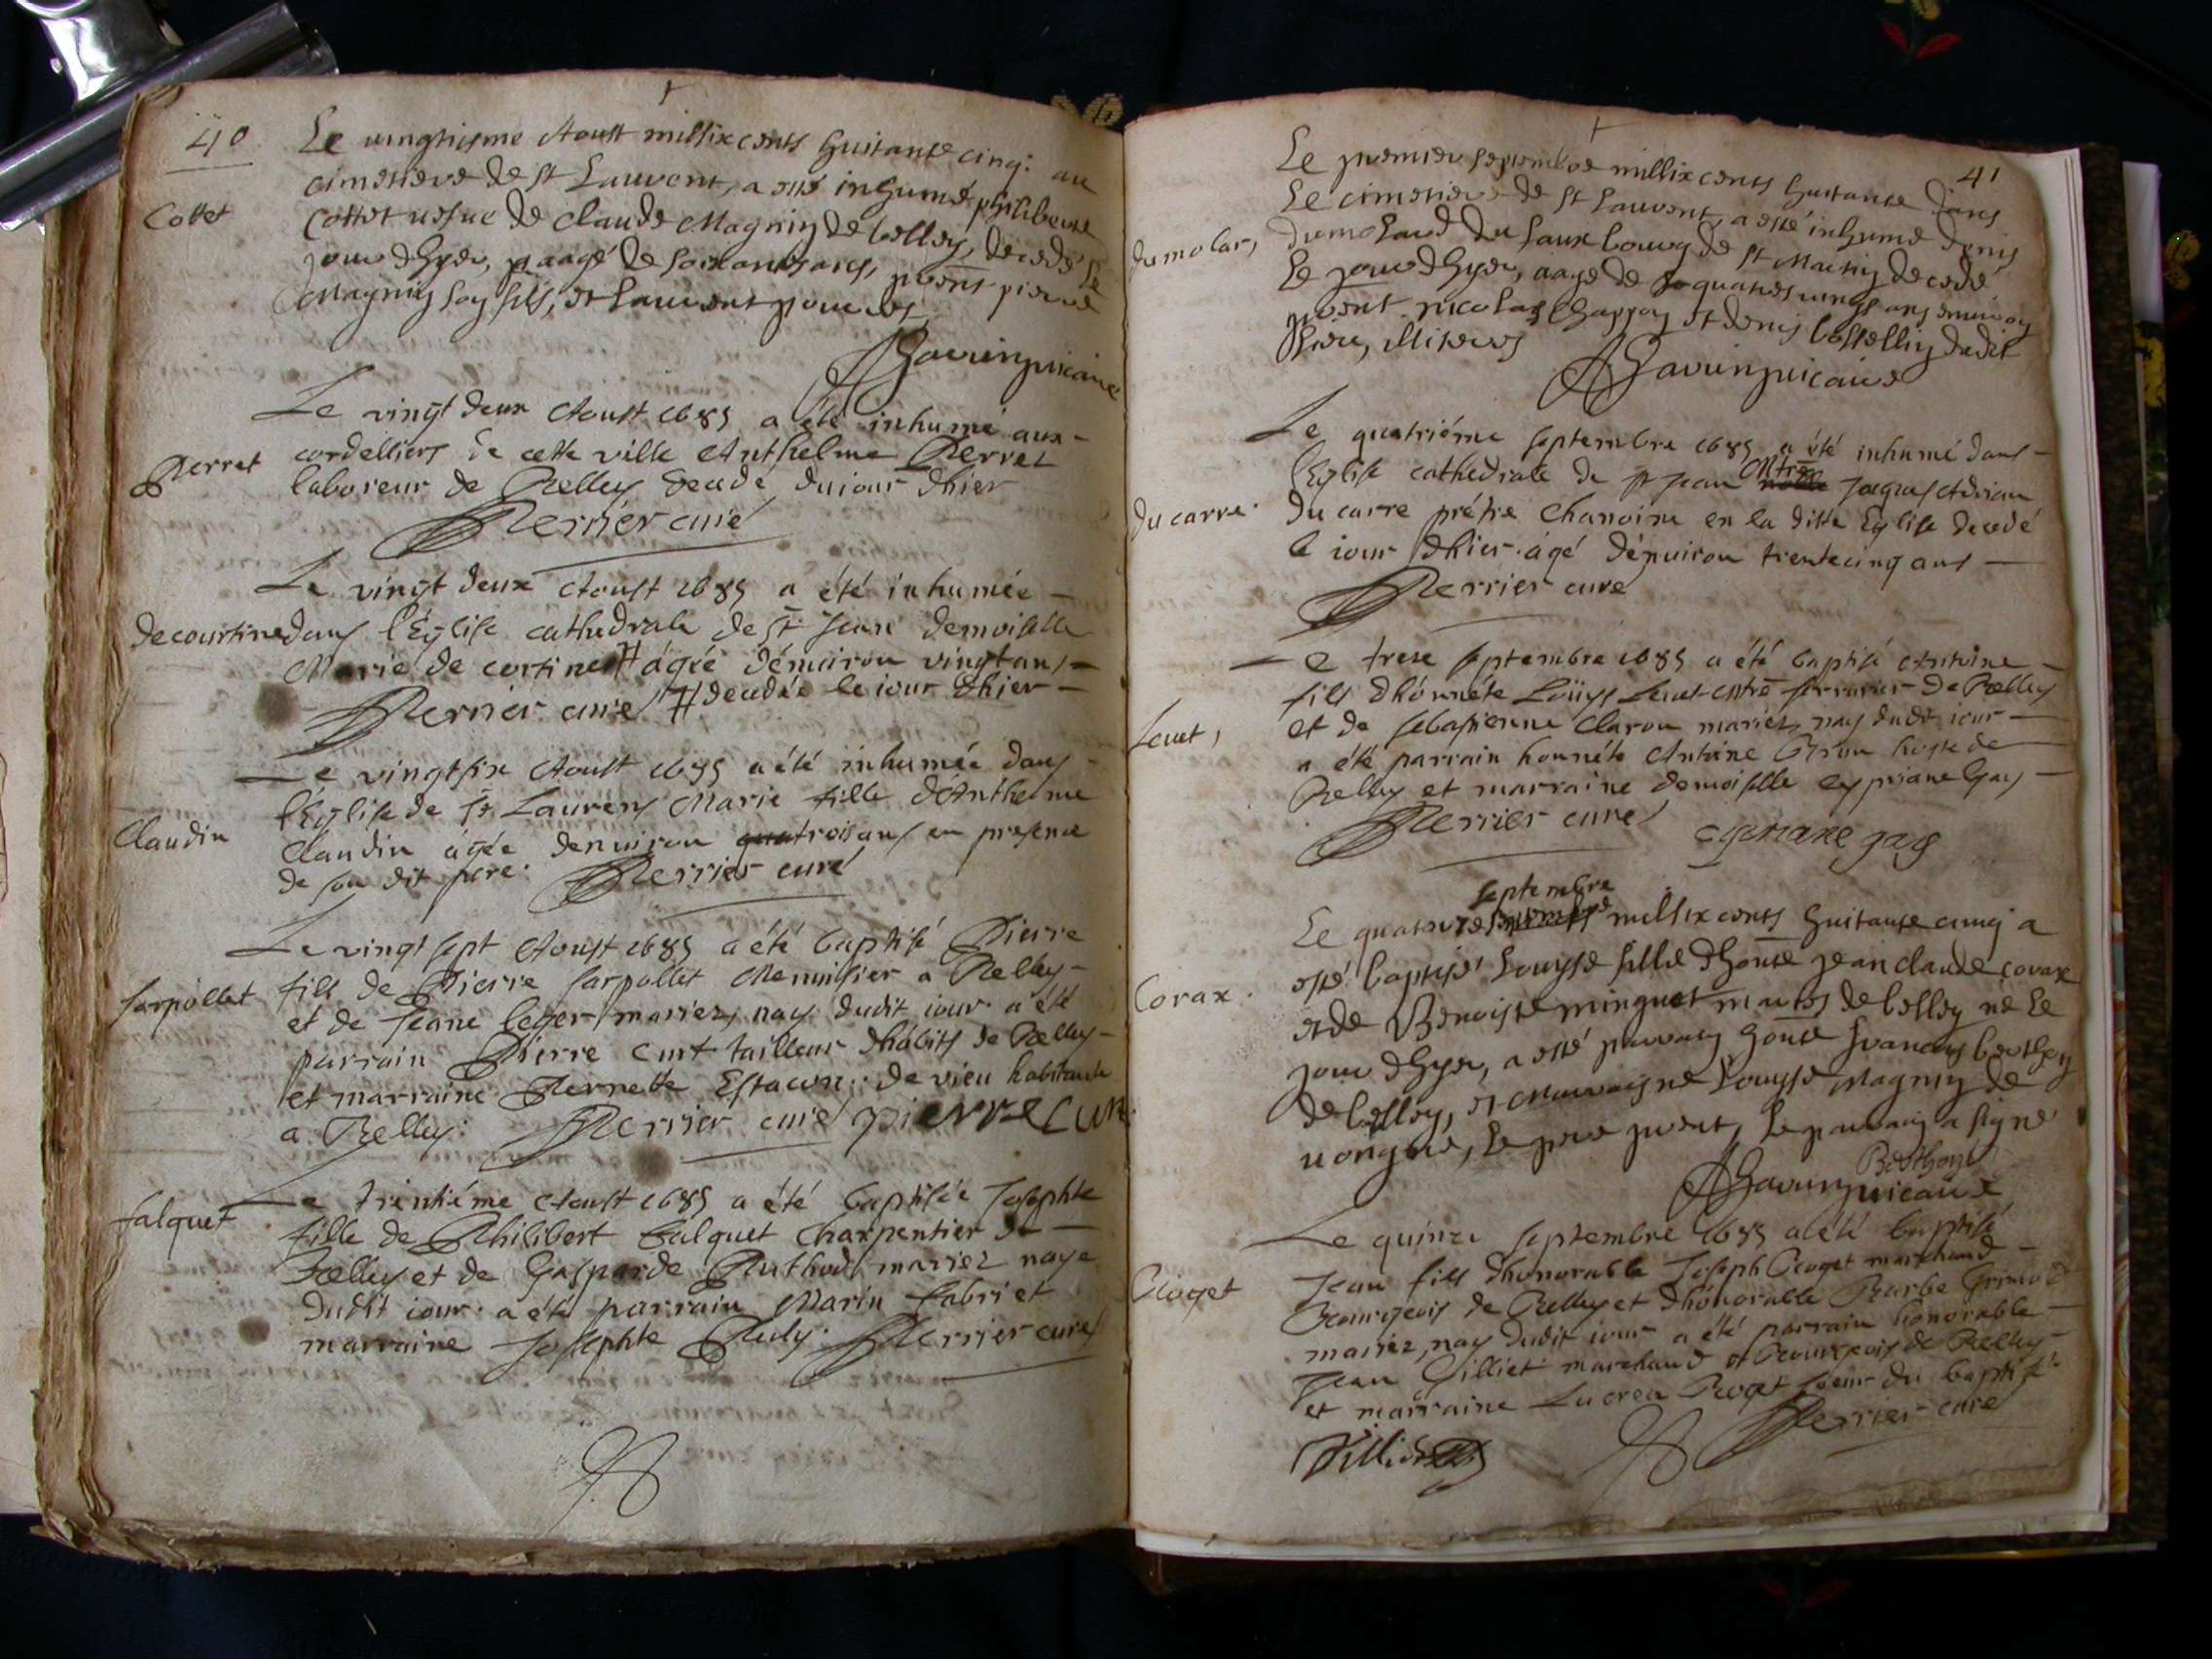 40
Le vingtiesme Aoust mil six cents huitante cinq: au
cimetiere de st Laurent, a esté inhumé philiberte
Cottet
Cottet vefve de Claude Magnin de belley, decedé le
jour dhyer, aagé de soixante ans, pnts pierre
Magnin son fils, et Laurent
Gavin vicaire
Le vingt deux Aoust 1685 a été inhumé aux
Perret
cordelliers de cette ville Anthelme Perret
laboreur de Belley decedé du iour dhier
Perrier curé
Le vingt deux Aoust 1685 a été inhumée
decourtine
dans l'Eglise cathedrale de St Jean demoiselle
Marie de cortines # agée démuiron vingt ans
Perrier curé # decedée le iour dhier
Le vingt six Aoust 1685 a été inhumée dans
l'Eglise de St Laurens Marie fille d'Anthelme
Claudin
Claudin agée denuiron trois ans en presence
de son dit pere. Perrier curé
Le vingt sept Aoust 1685 a été baptisé Pierre
sarpollet
fils de Pierre sarpollet Menuisier a Belley
et de Jeane leger mariez, nay dudit iour a été
parrain Pierre Curt tailleur dhabits de Belley
et marraine Pernette Estacon de vieu habitante
a Belley. Perrier curé pierre Curt
Le trentiéme Aoust 1685 a été baptisée Josephte
falquet
fille de Philibert falquet Charpentier de
Belley et de Gasparde Ruthod mariez naye
dudit iour. a été parrain Marin fabri et
marraine Josephte Ruly. Perrier curé
41
Le premier septembre mil six cents huitante dans
Le cimetiere de st Laurent, a esté inhumé denis
dumolar,
dumolard du fauxbourg de st Martin decedé
Le jour dhyer, aagé de quatre vingt ans environ
pnent nicolas Chappoy et denis bostellin dudit
lieu, illiteres
Gavin vicaire
Le quatriéme septembre 1685 a été inhumé dans
l'Eglise cathedrale de st Jean Mtre Jaques Adrian
du carre.
du carre prétre Chanoine en la ditte Eglise decedé
le iour dhier. agé dénuiron trente cinq ans
Perrier curé
Le treze septembre 1685 a été baptisé Antoine
fils dhónnéte Loüys Levet Mtre serrurier de Belley
Levet,
et de sebastienne Claron mariez nay dudit iour
a été parrain honnéte Antoine hoste de
Belley et marraine demoiselle cypriane Gay
Perrier curé cypriane gay
septembre
Le quatorze mil six cents huitante cinq a
esté baptisé Louyse fille dhonte jean claude corax
Corax.
et de Benoiste minguet mariés de belley né Le
jour dhyer, a esté parrain honte francoys berthon
de belley, et Marrayne Louyse Magnin de
uongnes, Le pere pnent, Le parrain a signé
Berthon
Gavin vicaire
Le quinze septembre 1685 a été baptisé
Jean fils dhonorable Joseph Roget marchand
Roget
Bourgeois de Belley et dhonorable Barbe Grimod
mariez, nay dudit iour a été parrain honorable
Jean Gilliet marchand et Bourgeois de Belley
et marraine Lucrece Roget soeur du baptisé
Perrier curé
Gilliet